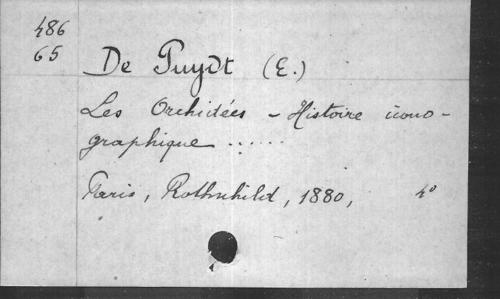 486
65
De Puydt (E.)
Les Orchidées - Histoire icono-
graphique ......
Paris, Rothschild, 1880, 4°